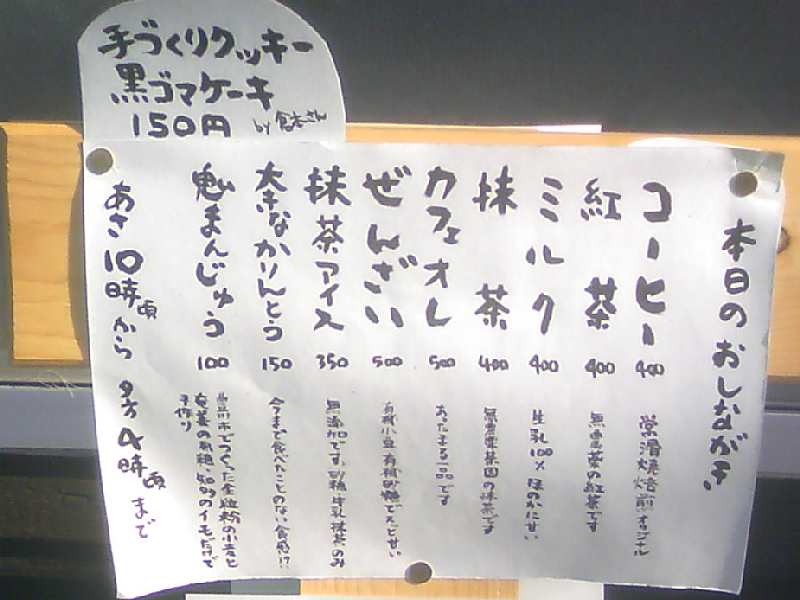 手づくりクッキー
黒ゴマケーキ
150円
by 倉本さん
本日のおしながき
コーヒー 400 常滑焼焙煎オリジナル
紅茶 400 無農薬の紅茶です
ミルク 400 生乳100% ほのかに甘い
抹茶 400 無農薬茶園の抹茶です
カフェオレ 500 あたたまる一品です
ぜんざい 500 有機小豆 有機砂糖で
抹茶アイス 350 無添加です。砂糖 牛乳 抹茶のみ
大きなかりんとう 150 今まで食べたことのない食感!?
鬼まんじゅう 100 豊川市でつくった全粒粉の小麦と
のイモだけで
手作り
あさ10時頃から 夕方4時頃まで